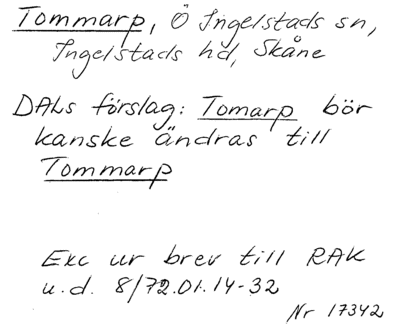 Tommarp, Ö Ingelstads sn,
Ingelstads hd, Skåne
DALs förslag: Tomarp bör
kanske ändras till
Tommarp
Exc ur brev till RAK
u.d. 8/72.01.14-32
Nr 17342